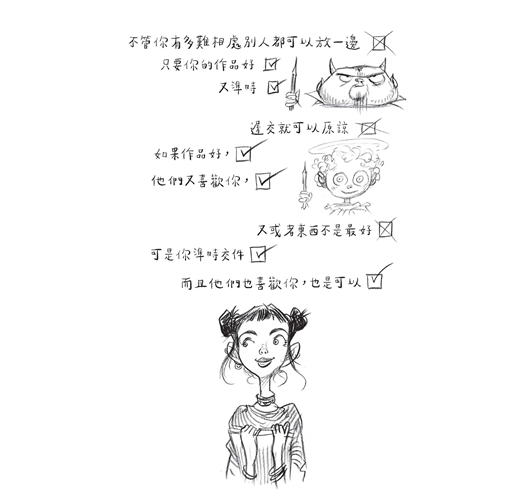 不管你有多難相處別人都可以放一邊
只要你的作品好
又準時
遲交就可以原諒
如果作品好，
他們又喜歡你，
又或者東西不是最好
可是你準時交件
而且他們也喜歡你，也是可以